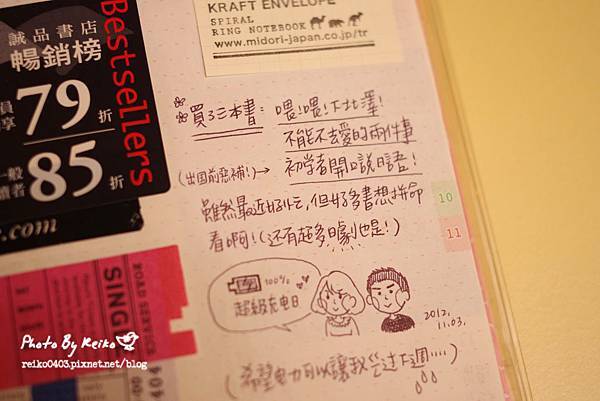 KRAFT ENVELOPE
SPIRAL
RING NOTEBOOK
www.midori-japan.co.jp/tr
誠品書店
暢銷榜
Bestsellers
員
享
79折
一般
讀者
85折
.com
買了三本書：喂！喂！下北澤！
不能不去愛的兩件事
(出国前惡補！)→ 初学者開口說日語！
雖然最近好忙，但好多書想拼命
看啊！(還有超多日劇也是！)
10
11
100%
超級充電日
2012.
11.03.
(希望電力可以讓我
過下週....)
SING
ROAD SERVICE
404
Photo By Reiko
reiko0403.pixnet.net/blog